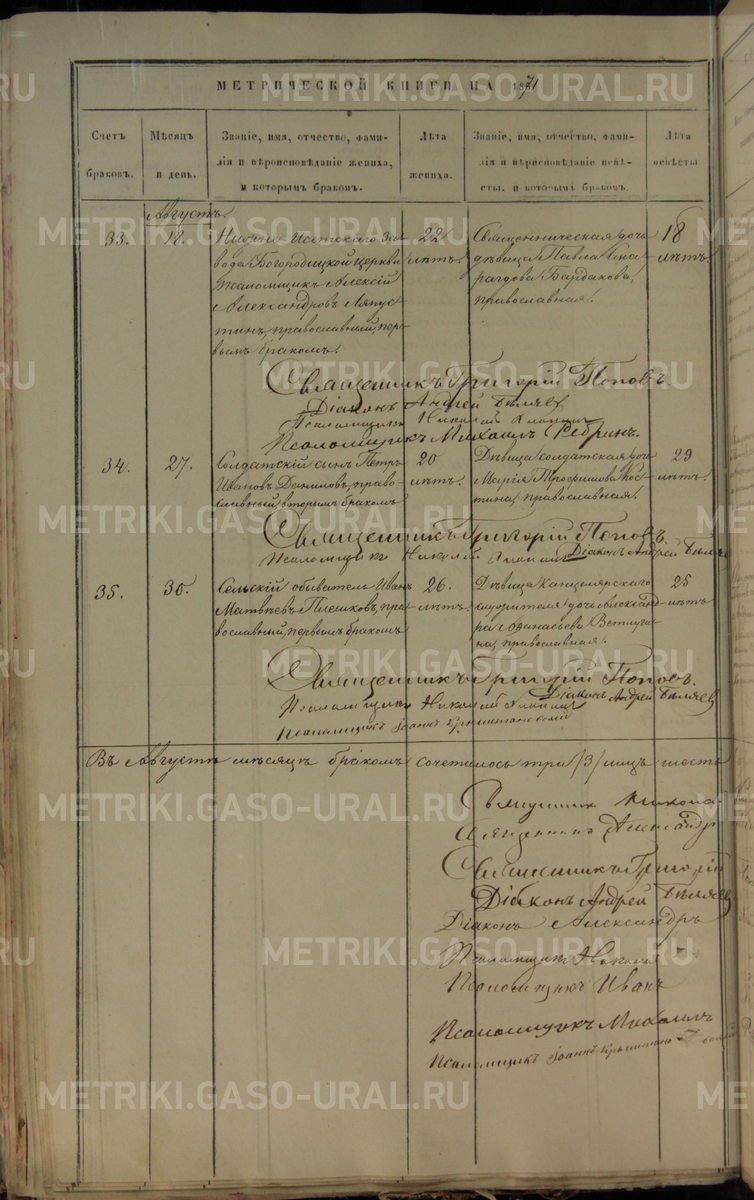 МЕТРИЧЕСКОЙ КНИГИ НА 1871
Счетъ браковъ.
Мѣсяцъ и день.
Званіе, имя, отчество, фами-
лія и вѣроисповѣданіе жениха,
и которымъ бракомъ.
Лѣта жениха.
Званіе, имя, отчество, фами-
лія и вѣроисповѣданіе невѣ-
сты, и которымъ бракомъ.
Лѣта невѣсты
Августъ.
33. 18.
Нижне-Исетскаго За-
вода Богородицкой церкви
Псаломщикъ Алексій
Александровъ Ляпус-
тинъ, православный, пер-
вымъ бракомъ.
22 лѣтъ.
Священническая дочь
дѣвица Павла
Бардакова,
православная.
18 лѣтъ.
Священникъ Григорій Поповъ.
Діаконъ Андрей Бѣляев
Псаломщикъ Николай
Псаломщикъ Михаилъ Ребринъ.
34. 27.
Солдатскій сынъ Петръ
Ивановъ Даниловъ, право-
славный, вторымъ бракомъ
20 лѣтъ.
Дѣвица солдатская дочь
Марія Трофимова Кос-
тина, православная.
29 лѣтъ.
Священникъ Григорій Поповъ.
Псаломщикъ Николай
Діаконъ Андрей Бѣляев
35. 30.
Сельскій обыватель Иванъ
Матвѣевъ Плешковъ, пра-
вославный, первымъ бракомъ
26. лѣтъ.
Дѣвица Канцелярскаго
служителя дочь Александ-
ра Афанасьева Ветлуги-
на, православная.
25 лѣтъ
Священникъ Григорій Поповъ.
Псаломщикъ Николай
Діаконъ Андрей Бѣляев
Псаломщикъ Іоаннъ
Въ Августѣ мѣсяцѣ бракомъ сочеталось три /3/ лицъ шесть
Священникъ Никола
Священникъ Александръ
Священникъ Григорій
Діаконъ Андрей Бѣляев
Діаконъ Александръ
Псаломщикъ Николай
Псаломщикъ Иванъ
Псаломщикъ Михаилъ
Псаломщикъ Іоаннъ
METRIKI.GASO-URAL.RU